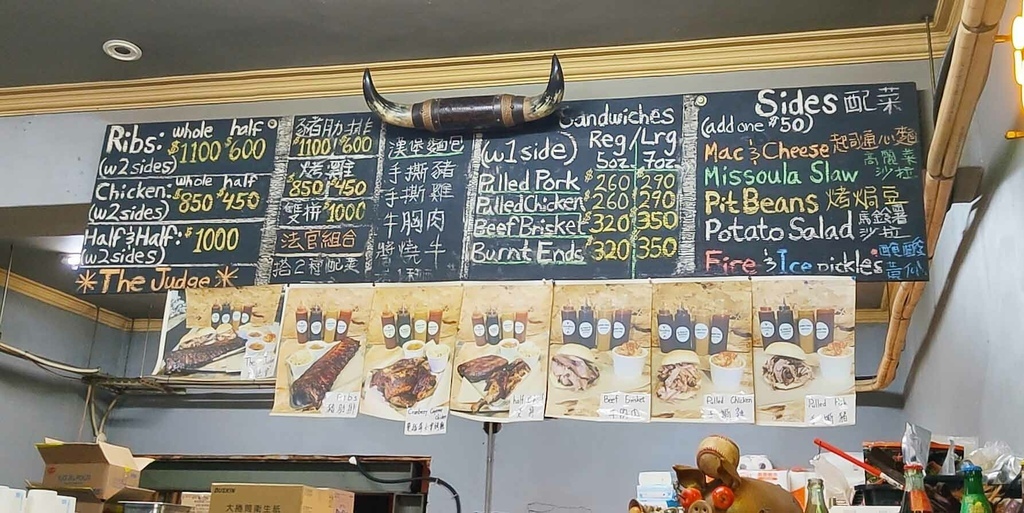 Ribs: whole half
$1100 $600
(w2sides)
Chicken: whole half
$850 $450
(w2sides)
Half&Half: $1000
(w2sides)
*The Judge*
豬肋排
$1100 $600
烤雞
$850 $450
雙拼 $1000
法官組合
搭2種配菜
漢堡麵包
手撕豬
手撕雞
牛胸肉
Sandwiches
(w1side) Reg/Lrg
5oz 7oz
Pulled Pork $260 $290
Pulled Chicken $260 290
Beef Brisket $320 350
Burnt Ends $320 350
Sides 配菜
(add one $50)
Mac & Cheese 起司通心麵
Missoula Slaw 高麗菜沙拉
Pit Beans 烤焗豆
Potato Salad 馬鈴薯沙拉
Fire & Ice pickles 酸黃瓜
Ribs
Beef Brisket
牛胸肉
Pulled Chicken
手撕雞
Pulled Pork
手撕豬
大捲筒衛生紙